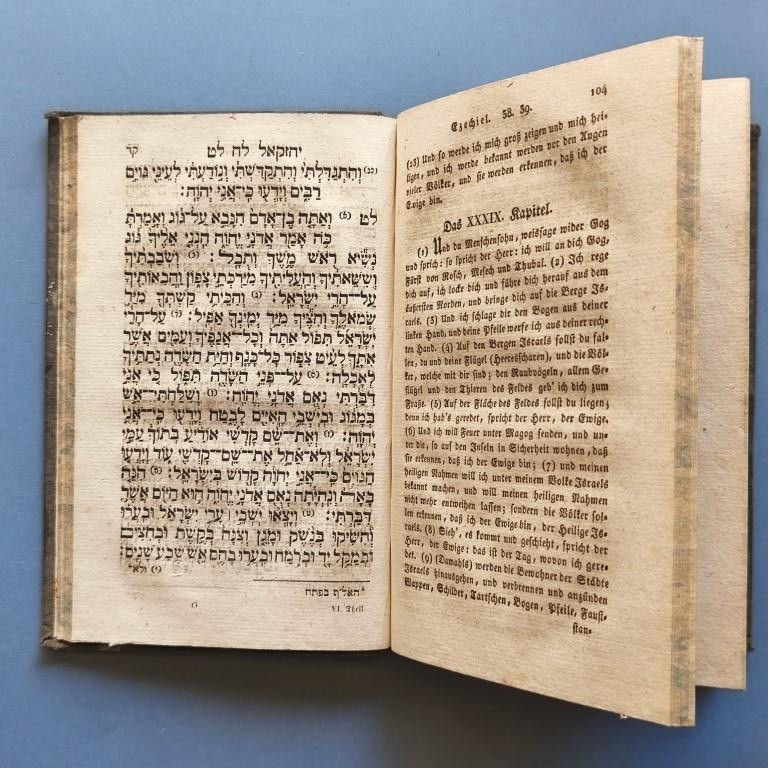 יחזקאל לח לט
קד
(כג) וְהִתְגַּדִּלְתִּי וְהִתְקַדִּשְׁתִּי וְנוֹדַעְתִּי לְעֵינֵי גּוֹיִם
רַבִּים וְיָדְעוּ כִּי־אֲנִי יְהוָֹה:
לט (א) וְאַתָּה בֶן־אָדָם הִנָּבֵא עַל־גּוֹג וְאָמַרְתָּ
כֹּה אָמַר אֲדֹנָי יֱהוִֹה הִנְנִי אֵלֶיךָ גּוֹג
נְשִׂיא רֹאשׁ מֶשֶׁךְ וְתֻבָל: (ב) וְשֹׁבַבְתִּיךָ
וְשִׁשֵּׁאתִיךָ וְהַעֲלִיתִיךָ מִיַּרְכְּתֵי צָפוֹן וַהֲבִאוֹתִיךָ
עַל־הָרֵי יִשְׂרָאֵל: (ג) וְהִכֵּיתִי קַשְׁתְּךָ מִיַּד
שְׂמֹאלֶךָ וְחִצֶּיךָ מִיַּד יְמִינְךָ אַפִּיל: (ד) עַל־הָרֵי
יִשְׂרָאֵל תִּפּוֹל אַתָּה וְכָל־אֲגַפֶּיךָ וְעַמִּים אֲשֶׁר
אִתָּךְ לְעֵיט צִפּוֹר כָּל־כָּנָף וְחַיַּת הַשָּׂדֶה נְתַתִּיךָ
לְאָכְלָה: (ה) עַל־פְּנֵי הַשָּׂדֶה תִּפּוֹל כִּי אֲנִי
דִבַּרְתִּי נְאֻם אֲדֹנָי יֱהוִֹה: (ו) וְשִׁלַּחְתִּי־אֵשׁ
בְּמָגוֹג וּבְיֹשְׁבֵי הָאִיִּים לָבֶטַח וְיָדְעוּ כִּי־אֲנִי
יְהוָֹה: (ז) וְאֶת־שֵׁם קָדְשִׁי אוֹדִיעַ בְּתוֹךְ עַמִּי
יִשְׂרָאֵל וְלֹא־אַחֵל אֶת־שֵׁם־קָדְשִׁי עוֹד וְיָדְעוּ
הַגּוֹיִם כִּי־אֲנִי יְהוָֹה קָדוֹשׁ בְּיִשְׂרָאֵל: (ח) הִנֵּה
בָאָה וְנִהְיָתָה נְאֻם אֲדֹנָי יֱהוִֹה הוּא הַיּוֹם אֲשֶׁר
דִּבַּרְתִּי: (ט) וְיָצְאוּ יֹשְׁבֵי עָרֵי יִשְׂרָאֵל וּבִעֲרוּ
וְהִשִּׂיקוּ בְּנֶשֶׁק וּמָגֵן וְצִנָּה בְּקֶשֶׁת וּבְחִצִּים
וּבְמַקֵּל יָד וּבְרֹמַח וּבִעֲרוּ בָהֶם אֵשׁ שֶׁבַע שָׁנִים:
(י) וְלֹא־
*האל״ף בפתח
G
VI. Theil.
104
Ezechiel. 38. 39.
(23) Und so werde ich mich groß zeigen und mich hei-
ligen, und ich werde bekannt werden vor den Augen
vieler Völker, und sie werden erkennen, daß ich der
Ewige bin.
Das XXXIX. Kapitel.
(1) Und du Menschensohn, weissage wider Gog
und sprich: so spricht der Herr: ich will an dich Gog,
Fürst von Rosch, Mesech und Thubal. (2) Ich rege
dich auf, ich locke dich und führe dich herauf aus dem
äußersten Norden, und bringe dich auf die Berge Is-
raels. (3) Und ich schlage dir den Bogen aus deiner
linken Hand, und deine Pfeile werfe ich aus deiner rech-
ten Hand. (4) Auf den Bergen Israels sollst du fal-
len, du und deine Flügel (Heeresscharen), und die Völ-
ker, welche mit dir sind; den Raubvögeln, allem Ge-
flügel und den Thieren des Feldes geb' ich dich zum
Fraße. (5) Auf der Fläche des Feldes sollst du liegen;
denn ich hab's geredet, spricht der Herr, der Ewige.
(6) Und ich will Feuer unter Magog senden, und un-
ter die, so auf den Inseln in Sicherheit wohnen, daß
sie erkennen, daß ich der Ewige bin; (7) und meinen
heiligen Nahmen will ich unter meinem Volke Israels
bekannt machen, und will meinen heiligen Nahmen
nicht mehr entweihen lassen; sondern die Völker sol-
len erkennen, daß ich der Ewige bin, der Heilige Is-
raels. (8) Sieh', es kommt und geschieht, spricht der
Herr, der Ewige: das ist der Tag, wovon ich gere-
det. (9) (Damahls) werden die Bewohner der Städte
Israels hinausgehen, und verbrennen und anzünden
Wappen, Schilder, Tartschen, Bogen, Pfeile, Faust-
stan-